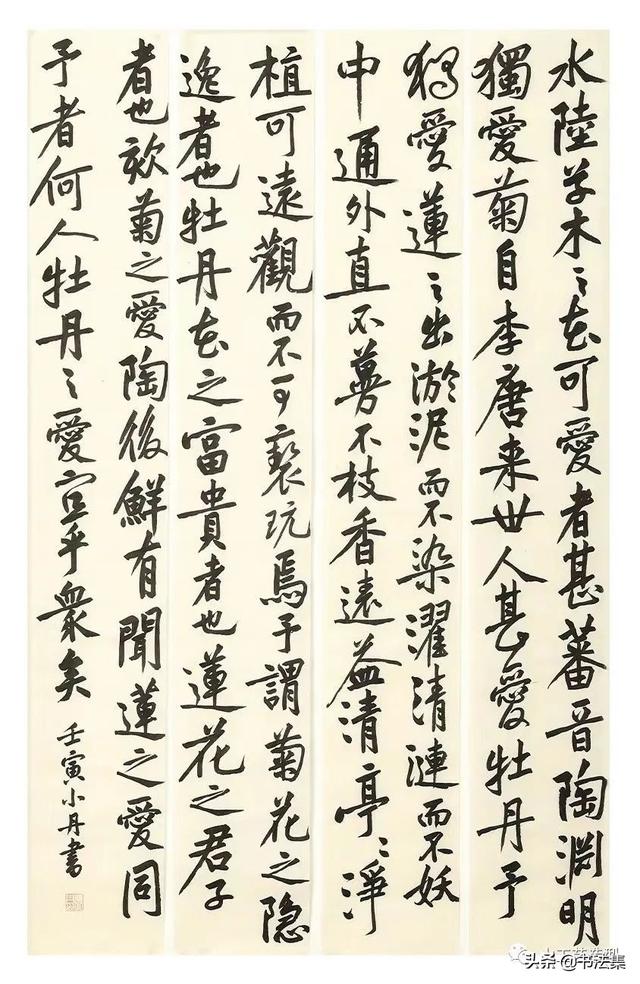 水陸草木之花可愛者甚蕃晉陶淵明
獨愛菊自李唐来世人甚愛牡丹予
独愛蓮之出淤泥而不染濯清漣而不妖
中通外直不蔓不枝香遠益清亭〻淨
植可遠觀而不可褻玩焉予謂菊花之隐
逸者也牡丹花之富貴者也蓮花之君子
者也欸菊之愛陶後鮮有聞蓮之愛同
予者何人牡丹之愛宜乎衆矣
壬寅小丹書
头条 @书法集